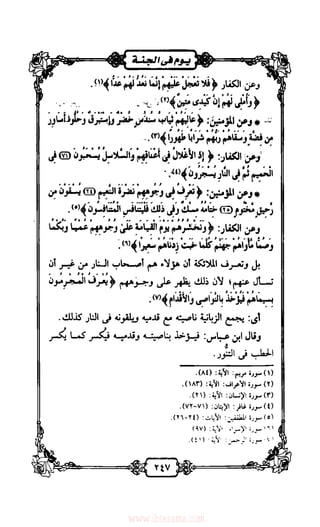 يوم في الجنة
وعن الكفار ﴿ فَلا تَعْجَلْ عَلَيْهِمْ إِنَّمَا نَعُدُّ لَهُمْ عَدًّا ﴾(١).
﴿ وَأُمْلِي لَهُمْ إِنَّ كَيْدِي مَتِينٌ ﴾(٢).
* وعن المؤمنين: ﴿ عَالِيَهُمْ ثِيَابُ سُندُسٍ خُضْرٌ وَإِسْتَبْرَقٌ وَحُلُّوا أَسَاوِرَ
مِن فِضَّةٍ وَسَقَاهُمْ رَبُّهُمْ شَرَابًا طَهُورًا ﴾(٣).
وعن الكفار: ﴿ إِذِ الأَغْلالُ فِي أَعْنَاقِهِمْ وَالسَّلاسِلُ يُسْحَبُونَ (٧١) فِي
الْحَمِيمِ ثُمَّ فِي النَّارِ يُسْجَرُونَ ﴾(٤).
* وعن المؤمنين: ﴿ تَعْرِفُ فِي وُجُوهِهِمْ نَضْرَةَ النَّعِيمِ (٢٤) يُسْقَوْنَ مِن
رَّحِيقٍ مَّخْتُومٍ (٢٥) خِتَامُهُ مِسْكٌ وَفِي ذَلِكَ فَلْيَتَنَافَسِ الْمُتَنَافِسُونَ ﴾(٥).
وعن الكفار: ﴿ وَنَحْشُرُهُمْ يَوْمَ الْقِيَامَةِ عَلَىٰ وُجُوهِهِمْ عُمْيًا وَبُكْمًا
وَصُمًّا مَّأْوَاهُمْ جَهَنَّمُ كُلَّمَا خَبَتْ زِدْنَاهُمْ سَعِيرًا ﴾(٦).
بل وتعرف الملائكة أن هؤلاء هم أصحاب النار من غير أن
تسأل عنهم؛ لأن ذلك يظهر على وجوههم ﴿ يُعْرَفُ الْمُجْرِمُونَ
بِسِيمَاهُمْ فَيُؤْخَذُ بِالنَّوَاصِي وَالأَقْدَامِ ﴾(٧).
أي: يجمع الزبانية ناصيته مع قدميه ويلقونه في النار كذلك.
وقال ابن عباس: فيؤخذ بناصيته وقدميه فيكسر كما يكسر
الحطب في التنور.
(١) سورة مريم: الآية: (٨٤).
(٢) سورة الأعراف: الآية: (١٨٣).
(٣) سورة الإنسان: الآية: (٢١).
(٤) سورة غافر: الآيتان: (٧١-٧٢).
(٥) سورة المطففين: الآيات: (٢٤-٢٦).
(٦) سورة الإسراء: الآية: (٩٧).
(٧) سورة الرحمن: الآية: (٤١).
٢٤٧
www.ibtesama.com